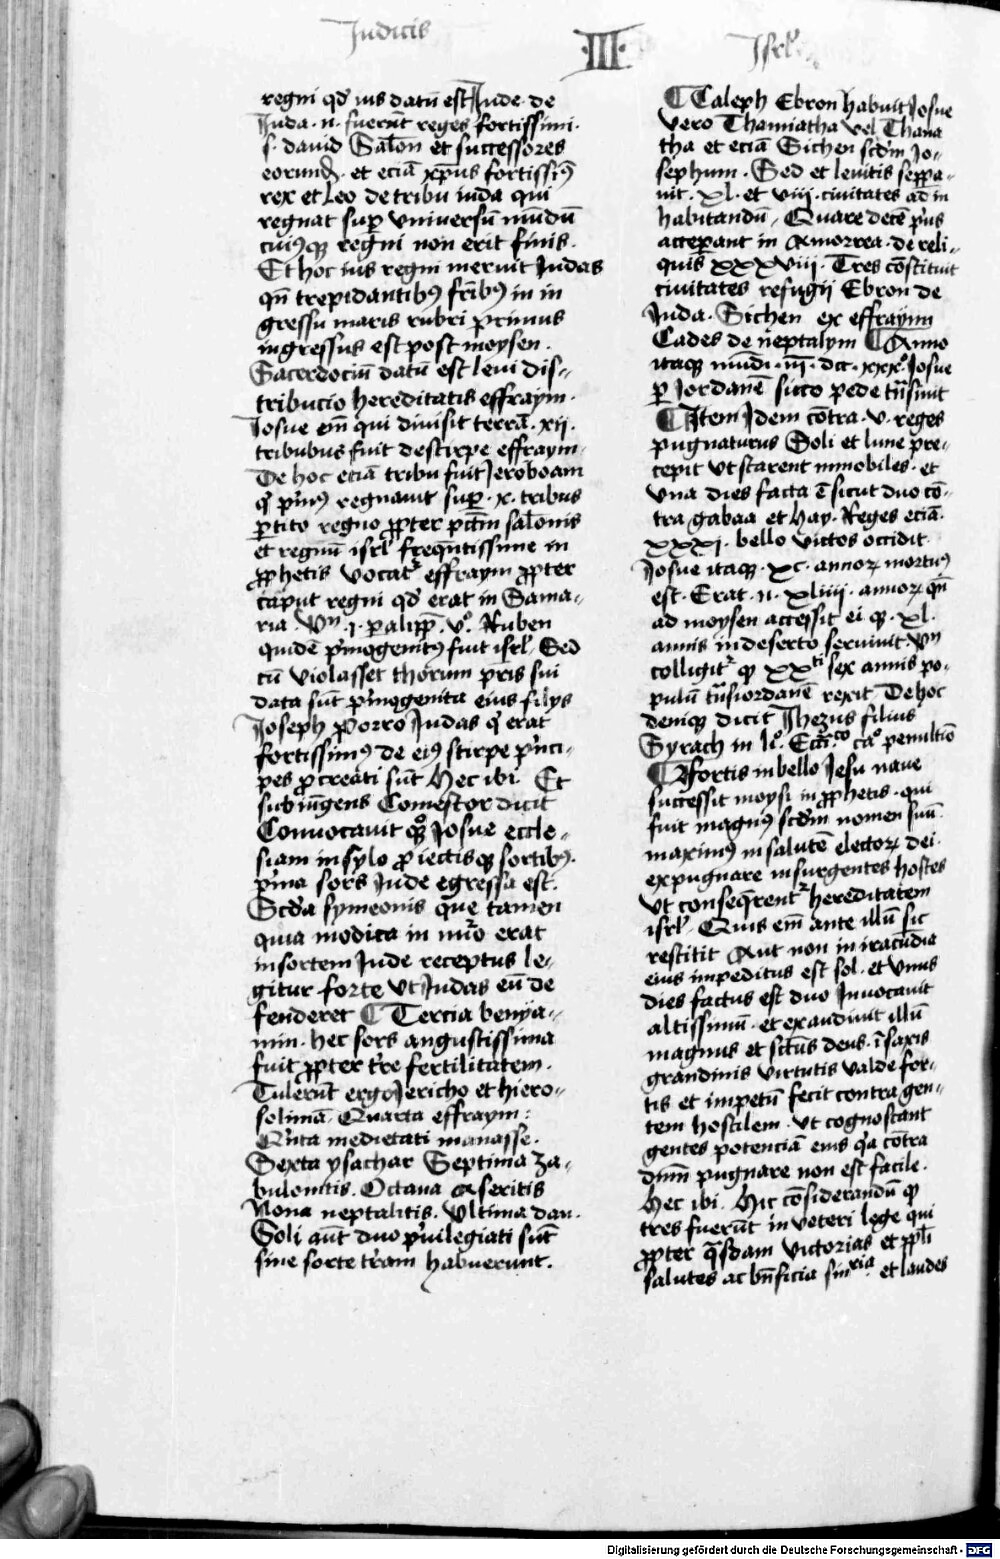 Iudicis
·III·
Isrl'
regni qd' ius datū est Iude· de
Iuda· n· fuerūt reges fortissimi·
s· dauid Salon̄ et successores
eorund'· et eciā xp̄us fortissim9
rex et Leo de tribu iuda qui
regnat sup̄ vniuersū mūdū
cui9q3 regni non erit finis·
Et hoc ius regni meruit Iudas
qn̄ trepidantib9 fr̄ib9 in in
gressu maris rubri p̄rimus
ingressus est post moysen·
Sacerdociū datū est leui dis-
tribucio hereditatis effraym·
Iosue em̄ qui diuisit terrā· xij·
tribubus fuit de stirpe effraym·
De hoc eciā tribu fuit Ieroboam
q' p'm9 regnauit sup̄· x· tribus
p̄tito regno ꝓpter pctm̄ salonis
et regnū isrl' freqn̄tissime in
ꝓphetis vocat' effraym ꝓpter
caput regni qd' erat in Sama-
ria vn̄· j· paralipp̄· v°· Ruben
quidē p'mogenit9 fuit isrl'· Sed
cū violasset thorum pr̄is sui
data sūt p'mogenita eius filijs
Ioseph Porro Iudas q' erat
fortissim9 de ei9 stirpe p'nci-
pes ꝓcreati sūt Hec ibi· Et
subiūgens Comestor dicit
Conuocauit q3 Iosue eccle-
siam in sylo ꝓiectisq3 sortib9·
p'ma sors Iude egressa est·
Scda symeonis que tamen
quia modica in nu'o erat
in sortem Iude receptus le-
gitur forte vt Iudas eū de
fenderet ¶ Tercia benya-
min· hec sors angustissima
fuit ꝓpter t're fertilitatem·
Tulerūt ergo Iericho et hiero-
solimā· Quarta effraym:
Q'nta medietati manasse·
Sexta ysachar Septima za-
bulonitis· Octaua aseritis
Nona neptalitis· vltima dan·
Soli aūt duo p'uilegiati sūt
sine sorte t'ram habuerunt·
¶ Caleph Ebron habuit Iosue
vero Thamnatha vel Thana
tha et eciā Sichen scd'm Io-
sephum· Sed et leuitis sep̄a-
uit· xl· et viij· ciuitates ad in
habitandū· Quare decē p'us
acceperant in Amorrea· de reli-
quis xxxviij· Tres cōstituit
ciuitates refugij Ebron de
Iuda· Sichen ex effraym
Cades de neptalym ¶ Anno
itaq3 mūdi· ij· dcc· xxx°· Iosue
ꝑ Iordanē sicco pede trāsiuit
¶ Item Idem cōtra· v· reges
pugnaturus Soli et lune pre-
cepit vt starent immobiles· et
vna dies facta ē sicut duo cō-
tra gabaa et hay· Reges eciā·
xxxj· bello victos occidit·
Iosue itaq3· xc· annoꝝ mortu9
est· Erat· n· xliiij· annoꝝ qn̄
ad moysen accessit ei q3· xl·
annis in deserto seruiuit· vn̄
colligit' q3 xxti sex annis po-
pulū trās iordanē rexit De hoc
deniq3 dicit Ihezus filius
Syrach in li°· Eccīco ca° penultiō
¶ Fortis in bello Iesu naue
successit moysi in ꝓphetis· qui
fuit magn9 scd'm nomen suū·
maxim9 in salutē electoꝝ dei·
expugnare insurgentes hostes
vt conseqrent' hereditatem
isrl'· Quis em̄ ante illū sic
restitit Aut non in iracūdia
eius impeditus est sol· et vnus
dies factus est duo Inuocauit
altissimū· et exaudiuit illū
magnus et sctūs deus· ī saxis
grandinis virtutis valde for-
tis et impetū fecit contra gen-
tem hostilem· vt cognoscant
gentes potenciā eius q'a cōtra
dnm̄ pugnare non est facile·
Hec ibi· Hic cōsiderandū q3
tres fuerūt in veteri lege qui
ꝓpter q̄sdam victorias et ppl'i
salutes ac bn̄ficia et laudes
Digitalisierung gefördert durch die Deutsche Forschungsgemeinschaft - DFG